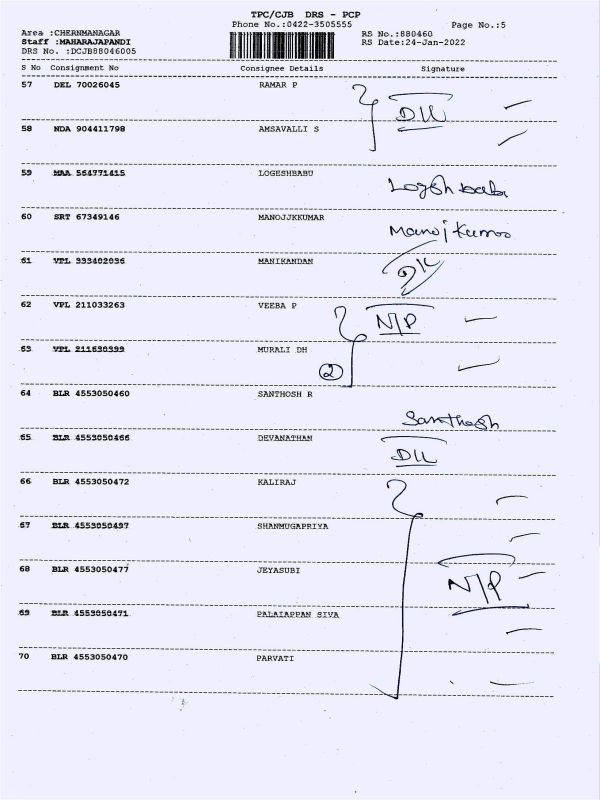 TPC/CJB DRS - PCP
Phone No.:0422-3505555 Page No.:5
Area :CHERNMANAGAR RS No.:880460
Staff :MAHARAJAPANDI RS Date:24-Jan-2022
DRS No. :DCJB88046005
S No Consignment No Consignee Details Signature
57 DEL 70026045 RAMAR P
D\L
58 NDA 904411798 AMSAVALLI S
59 MAA 564771415 LOGESHBABU
Logeshbabu
60 SRT 67349146 MANOJJKUMAR
Manoj Kumar
61 VPL 333402036 MANIKANDAN
D/L
62 VPL 211033263 VEEBA P
N/P
63 VPL 211630399 MURALI DH
2
64 BLR 4553050460 SANTHOSH R
Santhosh
65 BLR 4553050466 DEVANATHAN
D\L
66 BLR 4553050472 KALIRAJ
67 BLR 4553050497 SHANMUGAPRIYA
68 BLR 4553050477 JEYASUBI
N/P
69 BLR 4553050471 PALAIAPPAN SIVA
70 BLR 4553050470 PARVATI